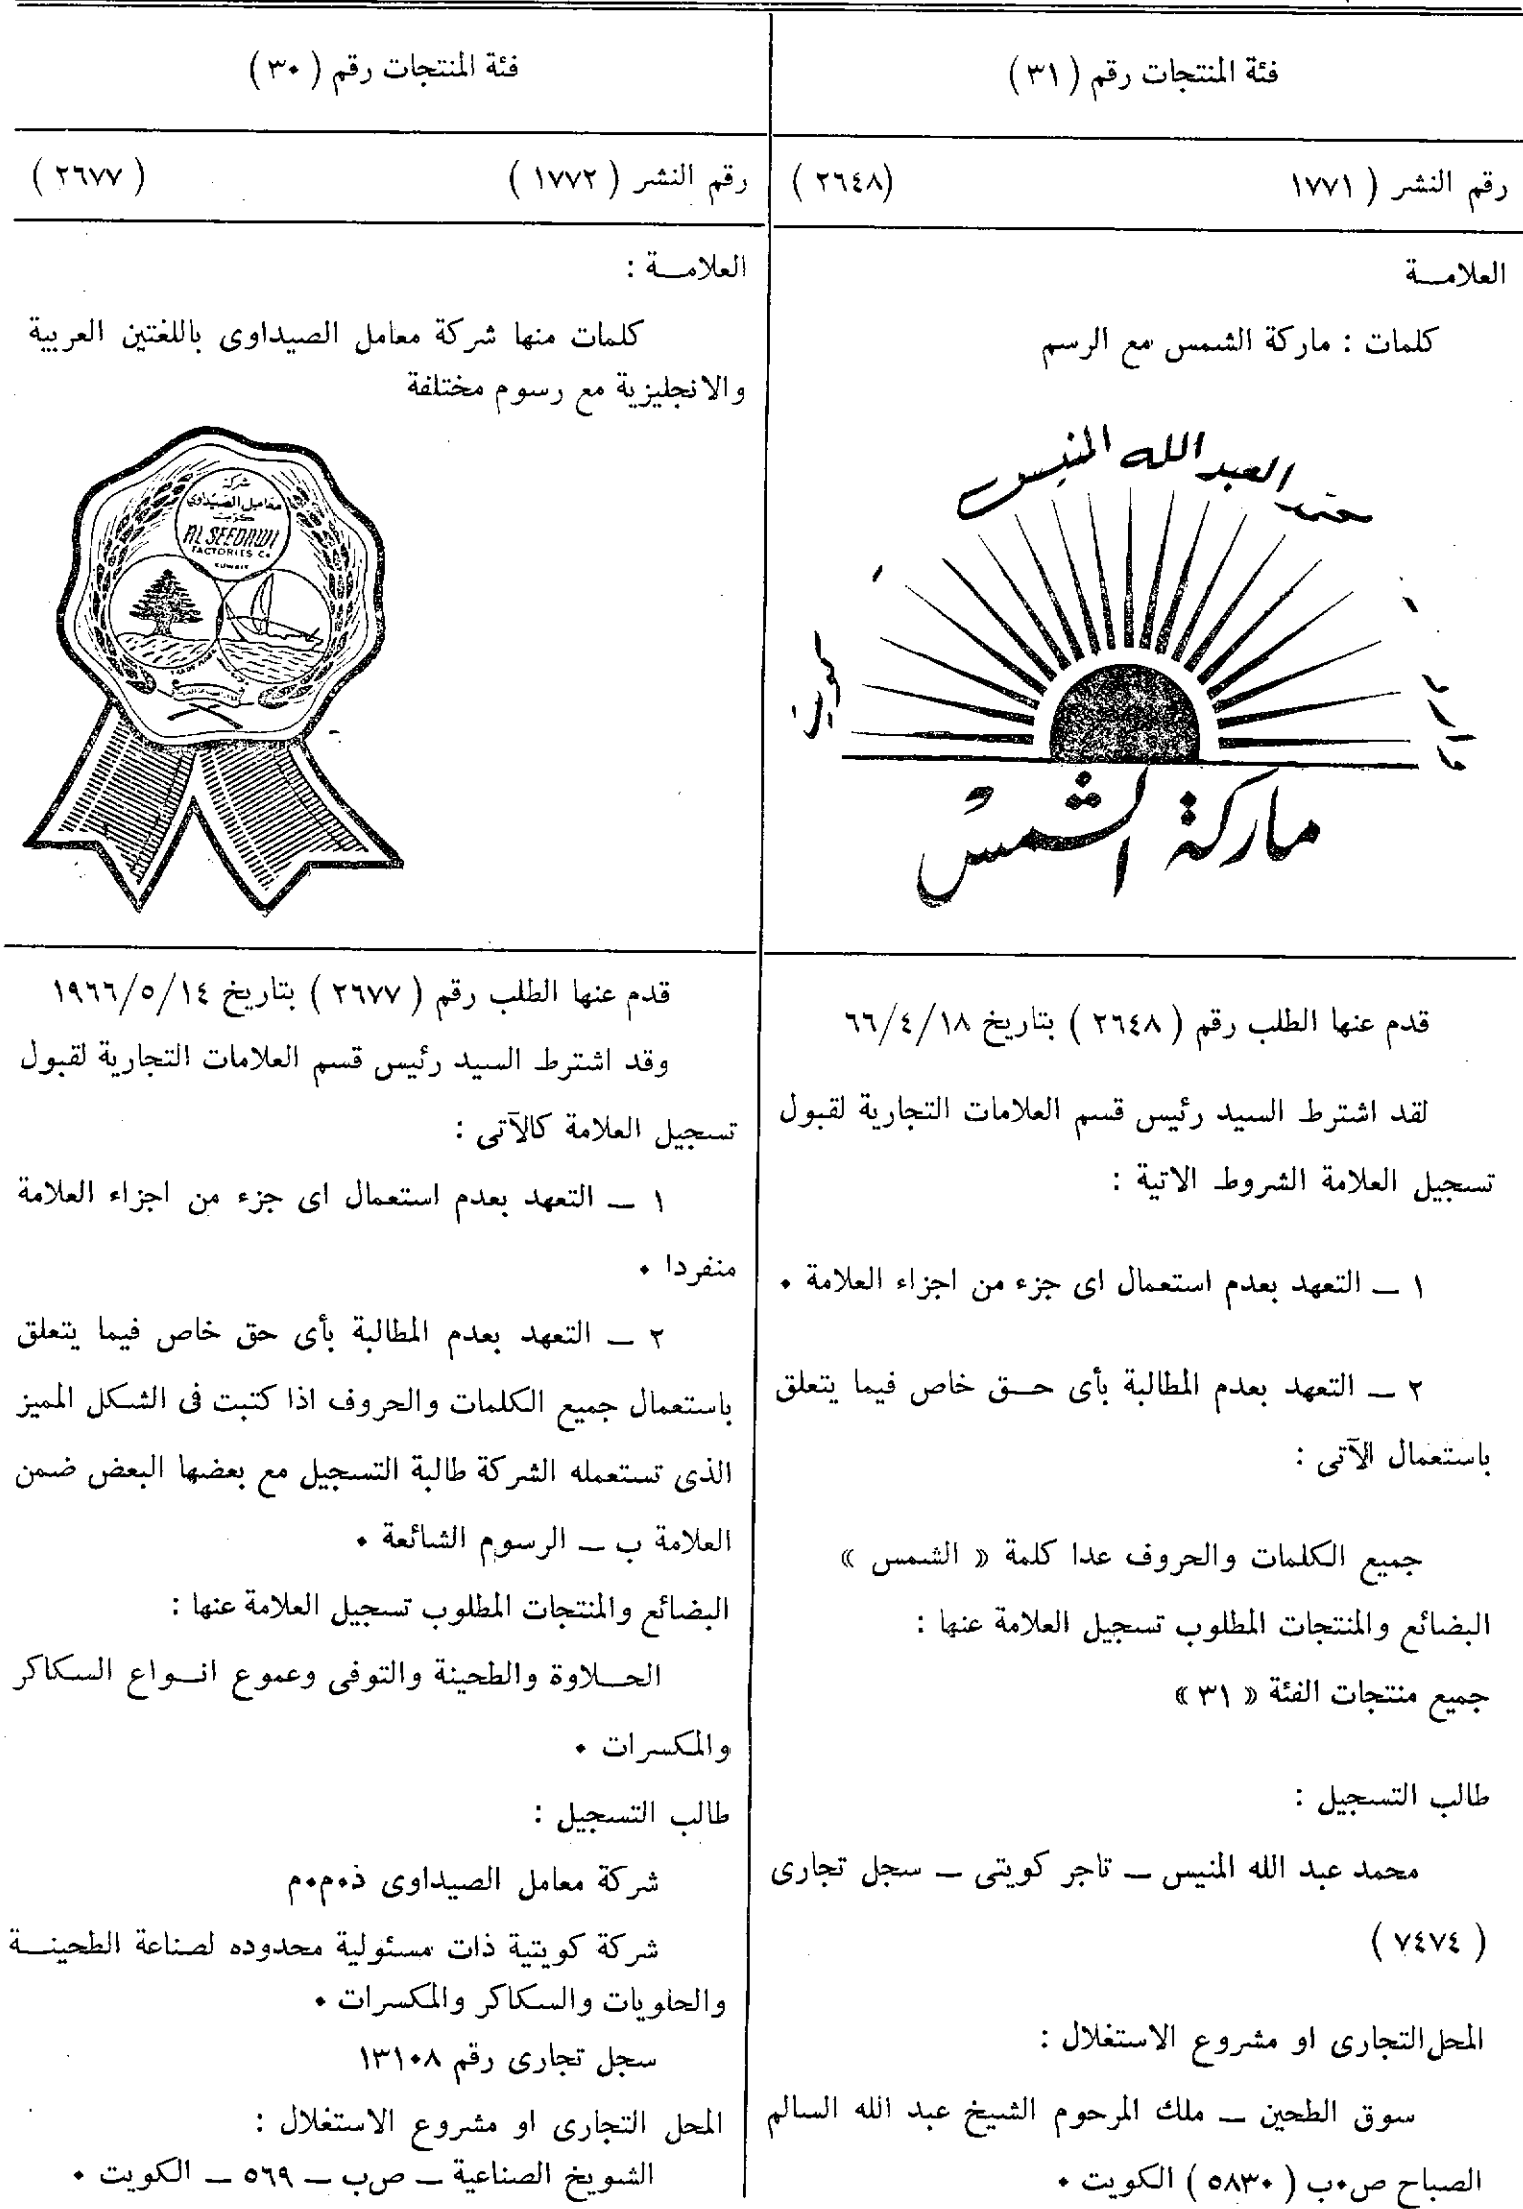 فئة المنتجات رقم ( ٣١ )
رقم النشر ( ١٧٧١ (٢٦٤٨ )
العلامـــة
كلمات : ماركة الشمس مع الرسم
العبد الله المنيس
كويت
ماركة الشمس
قدم عنها الطلب رقم ( ٢٦٤٨ ) بتاريخ ٦٦/٤/١٨
لقد اشترط السيد رئيس قسم العلامات التجارية لقبول
تسجيل العلامة الشروط الاتية :
١ ــ التعهد بعدم استعمال اى جزء من اجزاء العلامة ٠
٢ ــ التعهد بعدم المطالبة بأى حـــق خاص فيما يتعلق
باستعمال الآتى :
جميع الكلمات والحروف عدا كلمة « الشمس »
البضائع والمنتجات المطلوب تسجيل العلامة عنها :
جميع منتجات الفئة « ٣١ »
طالب التسجيل :
محمد عبد الله المنيس ــ تاجر كويتى ــ سجل تجارى
( ٧٤٧٤ )
المحل التجارى او مشروع الاستغلال :
سوق الطحين ــ ملك المرحوم الشيخ عبد الله السالم
الصباح ص٠ب ( ٥٨٣٠ ) الكويت ٠
فئة المنتجات رقم ( ٣٠ )
رقم النشر ( ١٧٧٢ ) ( ٢٦٧٧ )
العلامـــة :
كلمات منها شركة معامل الصيداوى باللغتين العربية
والانجليزية مع رسوم مختلفة
شركة
معامل الصيداوي
كويت
AL SEEDAWI
FACTORIES Co
KUWAIT
قدم عنها الطلب رقم ( ٢٦٧٧ ) بتاريخ ١٩٦٦/٥/١٤
وقد اشترط السيد رئيس قسم العلامات التجارية لقبول
تسجيل العلامة كالآتى :
١ ــ التعهد بعدم استعمال اى جزء من اجزاء العلامة
منفردا ٠
٢ ــ التعهد بعدم المطالبة بأى حق خاص فيما يتعلق
باستعمال جميع الكلمات والحروف اذا كتبت فى الشكل المميز
الذى تستعمله الشركة طالبة التسجيل مع بعضها البعض ضمن
العلامة ب ــ الرسوم الشائعة ٠
البضائع والمنتجات المطلوب تسجيل العلامة عنها :
الحـــلاوة والطحينة والتوفى وعموع انـــواع السكاكر
والمكسرات ٠
طالب التسجيل :
شركة معامل الصيداوى ذ٠م٠م
شركة كويتية ذات مسئولية محدوده لصناعة الطحينـــة
والحلويات والسكاكر والمكسرات ٠
سجل تجارى رقم ١٣١٠٨
المحل التجارى او مشروع الاستغلال :
الشويخ الصناعية ــ ص٠ب ــ ٥٦٩ ــ الكويت ٠